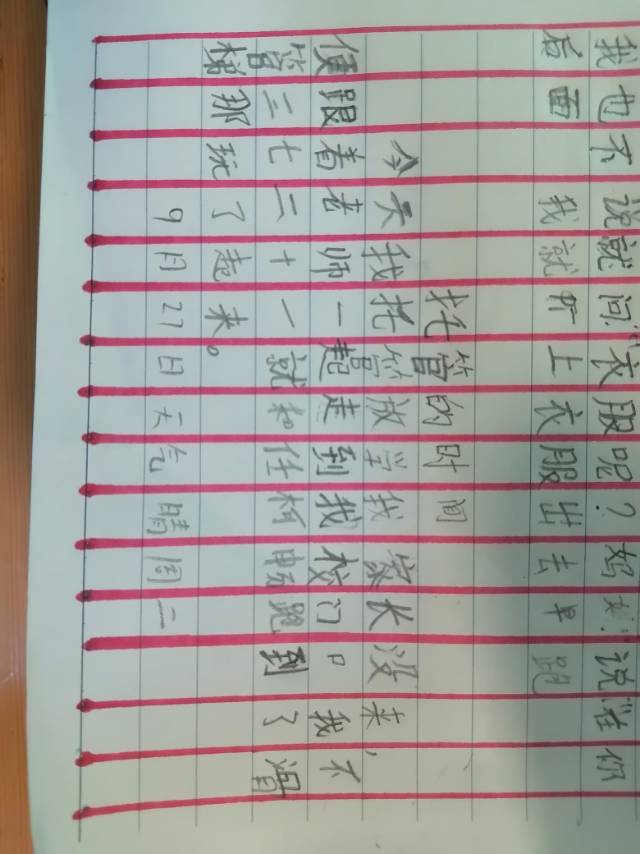 我也不说就问:“衣服呢?妈妈:说:“在你
后面 我就穿上衣服出去早跑
托管的时间
今天我托管放学我家长没来,
便跟着老师一起走到我校门口我不
管三七二十一就和任柯畅跑到了滑
梯那玩了起来。
9月27日天气晴周二